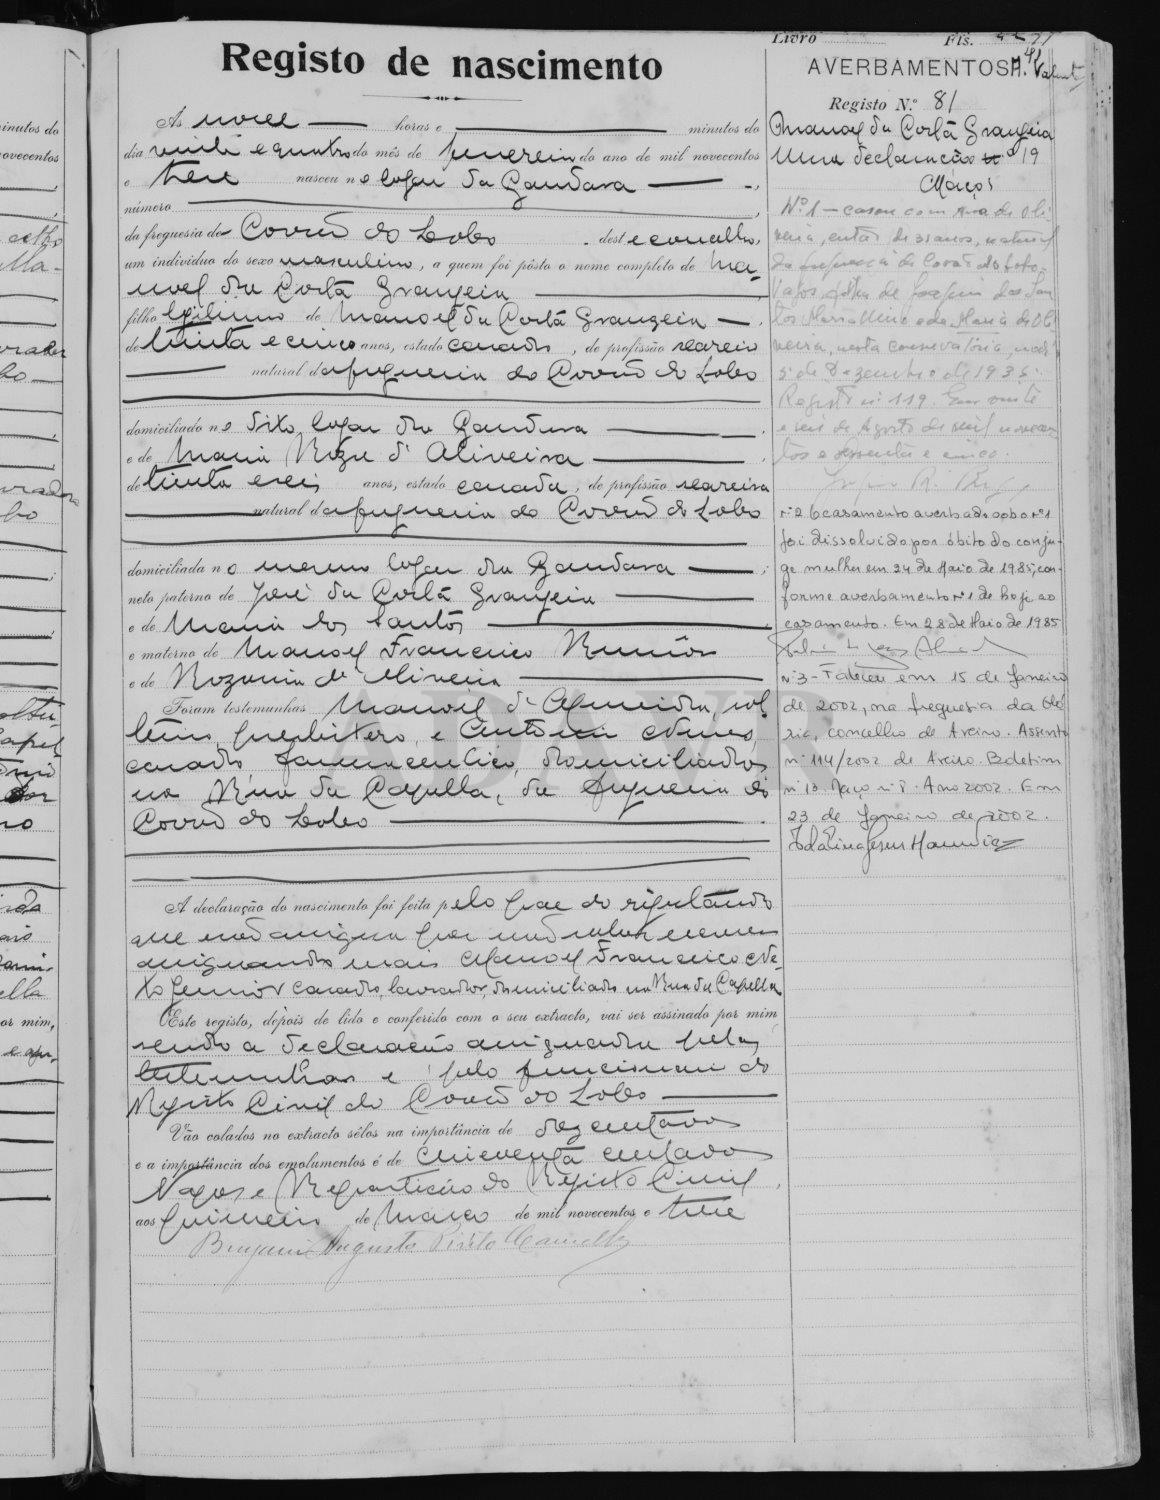 Livro Fls. 41
Registo de nascimento
AVERBAMENTOS
Registo N.º 81
Manoel da Costa Grangeia
Uma declaração nº 19
Março
Às nove horas e minutos do
dia vinte e quatro do mês de fevereiro do ano de mil novecentos
e treze nasceu no logar da Gandara
número
da freguesia de Covão do Lobo deste concelho,
um indivíduo do sexo masculino, a quem foi pôsto o nome completo de Ma-
noel da Costa Grangeia
filho legitimo de Manoel da Costa Grangeia
de trinta e cinco anos, estado casado, de profissão seareiro
natural da freguesia do Covão do Lobo
domiciliado no dito logar da Gandara
e de Maria Roza d'Oliveira
de trinta e seis anos, estado casada, de profissão seareira
natural da freguesia do Covão do Lobo
domiciliada no mesmo logar da Gandara
neto paterno de José da Costa Grangeia
e de Maria dos Santos
e materno de Manoel Francisco
e de Rozaria d'Oliveira
Foram testemunhas Manoel d'Almeida, sol-
teiro, presbitero, e Antonio Nunes,
casado, farmaceutico, domiciliados
na Rua da Capella, da freguesia do
Covão do Lobo
A declaração do nascimento foi feita pelo pae do registando
que não assigna por não saber escrever
assignando mais Manoel Francisco Ne-
to Junior casado, lavrador, domiciliado na Rua da Capella
Este registo, depois de lido e conferido com o seu extracto, vai ser assinado por mim
sendo a declaração assignada pelas
testemunhas e pelo funcionario do
Registo Civil do Covão do Lobo
Vão colados no extracto sêlos na importância de dez centavos
e a importância dos emolumentos é de cincoenta centavos
Vagos e Repartição do Registo Civil,
aos primeiro de Março de mil novecentos e treze
Benjamim Augusto
Nº 1 — casou com Ana de Oli-
veira, então de 31 anos, natural
da freguesia de Covão do Lobo,
Vagos, filha de Joaquim dos San-
tos e de Maria de Oli-
veira, nesta conservatória, no dia
5 de Dezembro de 1935.
Registo nº 119. Em vinte
e seis de Agosto de mil novecen-
tos e sessenta e cinco.
nº 2 O casamento averbado sob o nº 1
foi dissolvido por óbito do conju-
ge mulher em 24 de Maio de 1985, con-
forme averbamento nº 1 de hoje ao
casamento. Em 28 de Maio de 1985
nº 3 - Faleceu em 15 de Janeiro
de 2002, na freguesia da Gló-
ria, concelho de Aveiro. Assento
nº 114/2002 de Aveiro. Boletim
nº 13. Maço nº 1. Ano 2002. Em
23 de Janeiro de 2002.
ADAVR